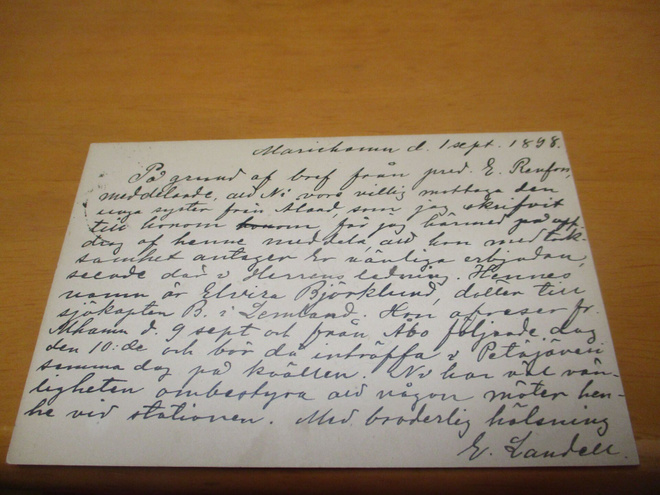 Mariehamn d. 1 sept. 1898.
På grund af bref från pred. E. Renfors,
meddelande, att Ni vore villig mottaga den
unga syster från Åland, som jag skrifvit
till honom honom, får jag härmed på upp-
drag af henne meddela, att hon med tack-
samhet antager Er vänliga erbjudan,
seende där i Herrens ledning. Hennes
namn är Elvira Björklund, dotter till
sjökapten B. i Lemland. Hon afreser fr.
Mhamn d. 9 sept och från Åbo följande dag
den 10:de och bör då inträffa i Petäjävesi
samma dag på kvällen. Ni har väl vän-
ligheten ombestyra att någon möter hen-
ne vid stationen. Med broderlig hälsning
E. Landell.